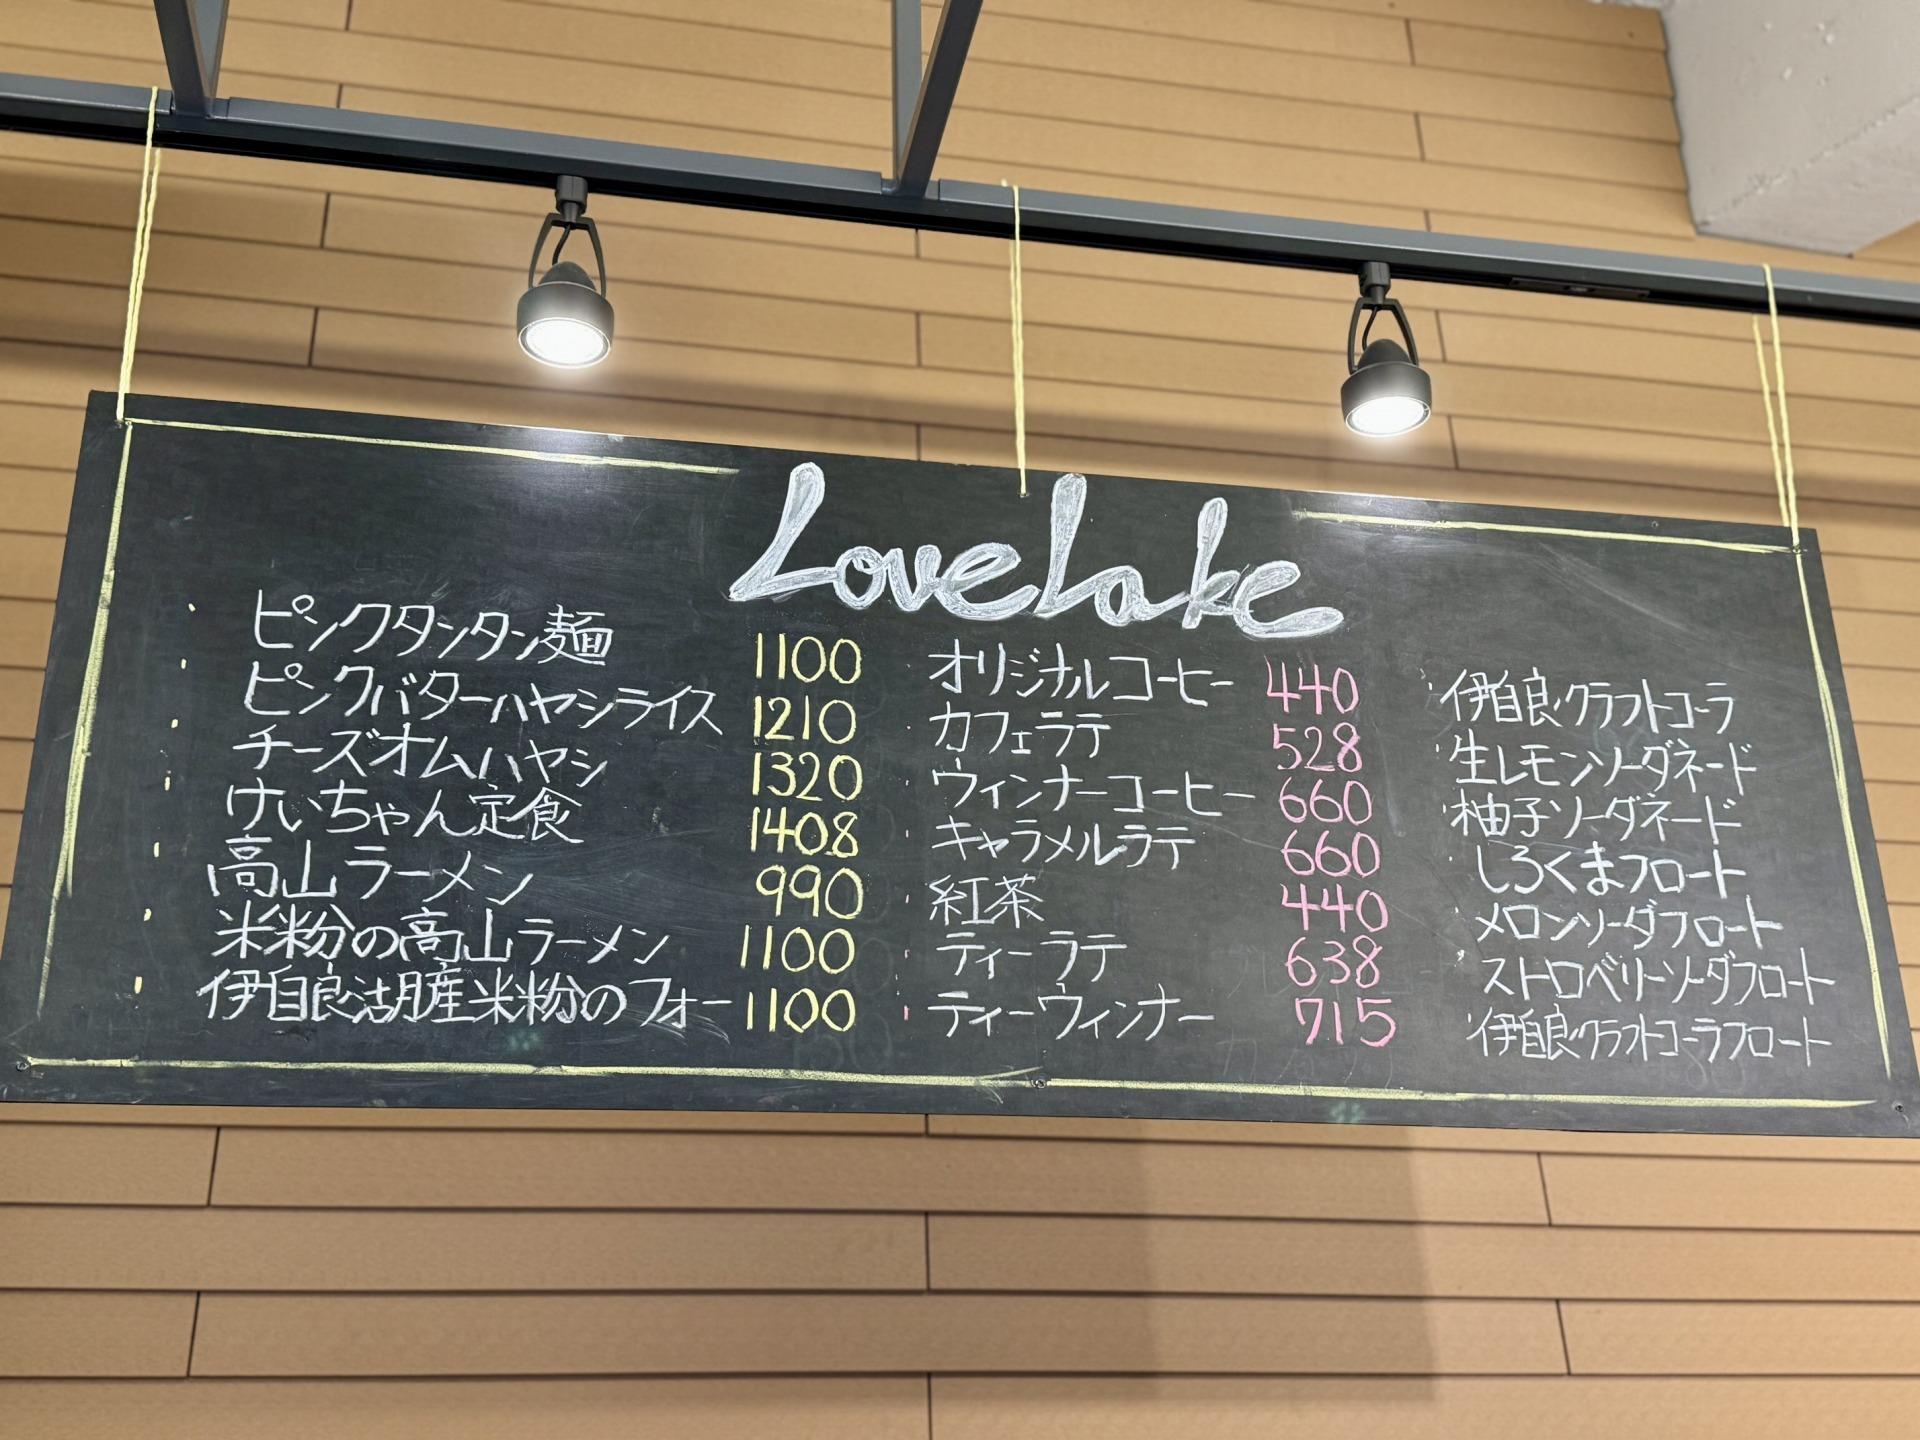 LoveLake
ピンクタンタン麺 1100
ピンクバターハヤシライス 1210
チーズオムハヤシ 1320
けいちゃん定食 1408
高山ラーメン 990
米粉の高山ラーメン 1100
伊自良湖産米粉のフォー 1100
オリジナルコーヒー 440
カフェラテ 528
ウィンナーコーヒー 660
キャラメルラテ 660
紅茶 440
ティーラテ 638
ティーウィンナー 715
伊自良クラフトコーラ
生レモンソーダネード
柚子ソーダネード
しろくまフロート
メロンソーダフロート
ストロベリーソーダフロート
伊自良クラフトコーラフロート